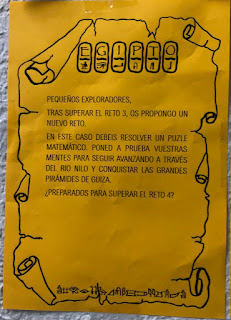 EGIPTO
PEQUEÑOS EXPLORADORES,
TRAS SUPERAR EL RETO 3, OS PROPONGO UN
NUEVO RETO.
EN ESTE CASO DEBÉIS RESOLVER UN PUZLE
MATEMÁTICO. PONED A PRUEBA VUESTRAS
MENTES PARA SEGUIR AVANZANDO A TRAVÉS
DEL RIO NILO Y CONQUISTAR LAS GRANDES
PIRÁMIDES DE GUIZA.
¿PREPARADOS PARA SUPERAR EL RETO 4?